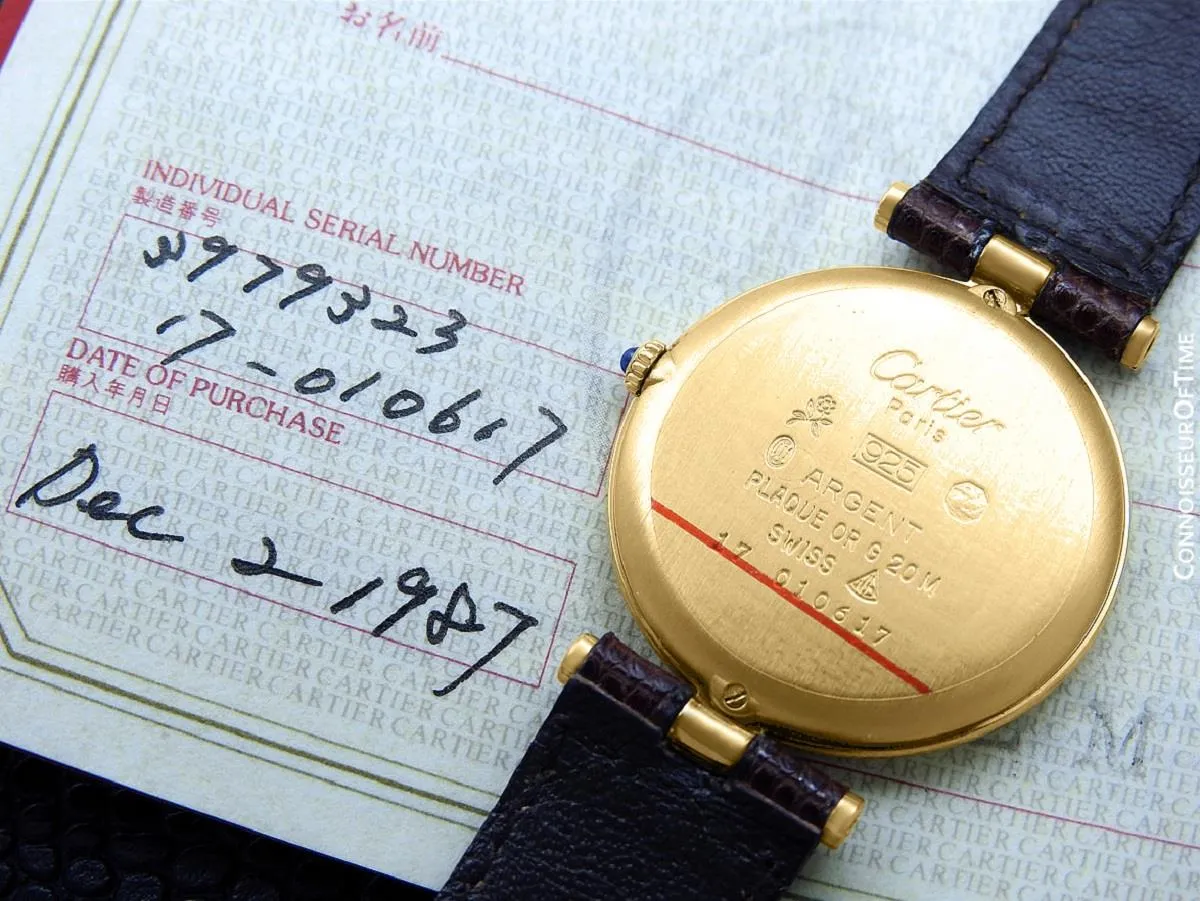 お名前
INDIVIDUAL SERIAL NUMBER
製造番号
3979323
17-010617
DATE OF PURCHASE
購入年月日
Dec 2 1987
Cartier
Paris
925
ARGENT
PLAQUE OR G 20 M
SWISS
17 010617
CONNOISSEUROFTIME